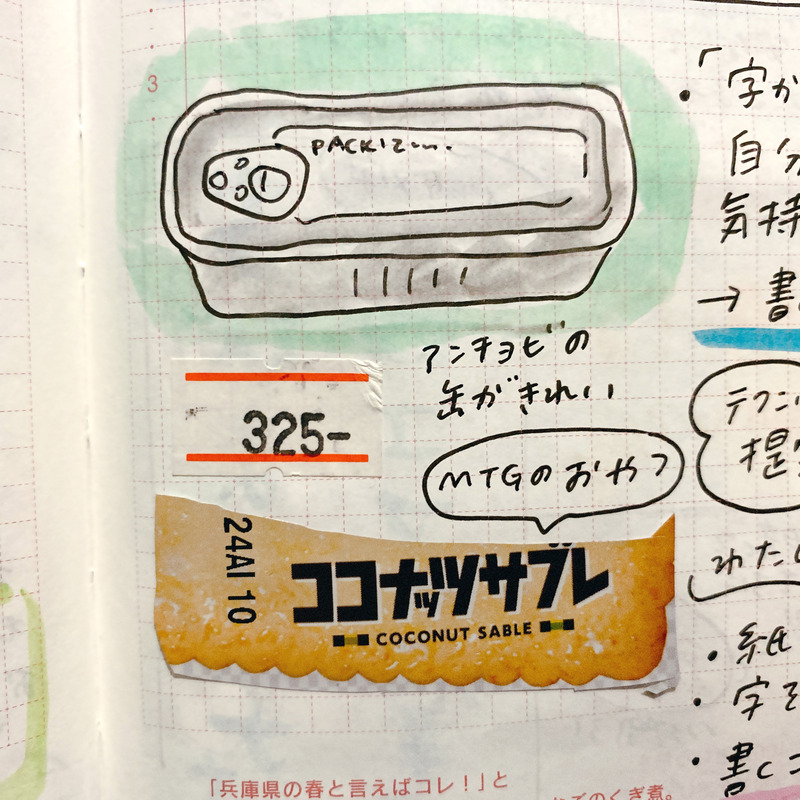 3
PACKIZ
アンチョビの
缶がきれい
325-
MTGのおやつ
24AI 10
ココナッツサブレ
COCONUT SABLE
「兵庫県の春と言えばコレ！」と
のくぎ煮。
・「字が
自分
気持
→ 書
テクニッ
提
わたし
・紙
・字を
・書くコ